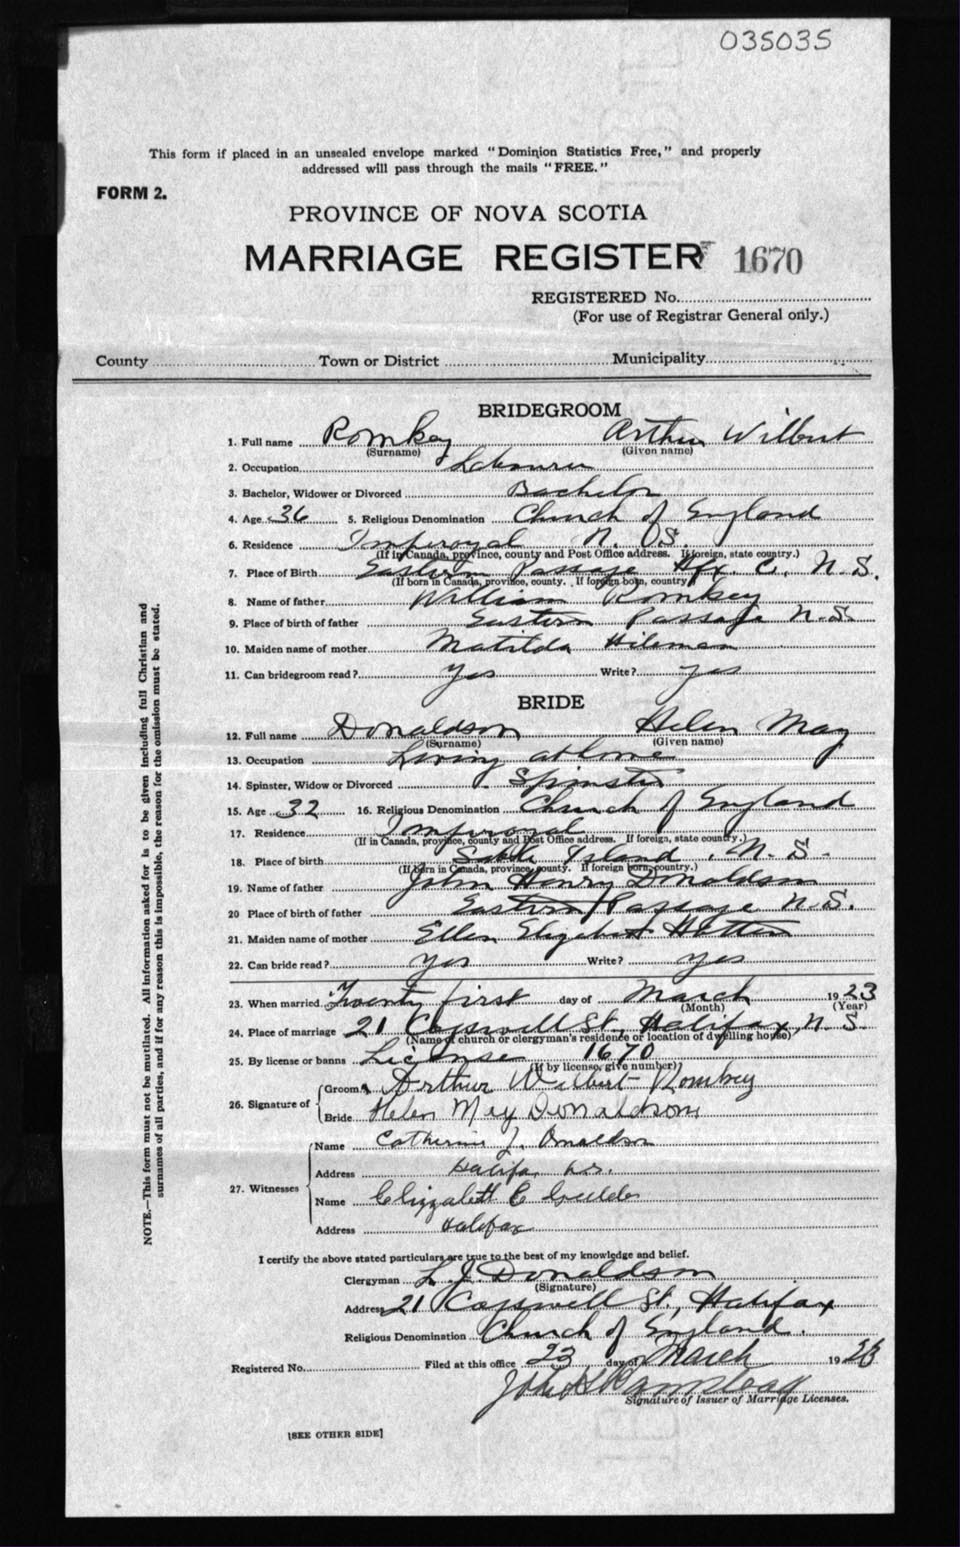 035035
This form if placed in an unsealed envelope marked "Dominion Statistics Free," and properly
addressed will pass through the mails "FREE."
FORM 2.
PROVINCE OF NOVA SCOTIA
MARRIAGE REGISTER 1670
REGISTERED No.
(For use of Registrar General only.)
County Town or District Municipality
BRIDEGROOM
1. Full name Romkey Arthur Wilbert
(Surname) (Given name)
2. Occupation Labourer
3. Bachelor, Widower or Divorced Bachelor
4. Age 36 5. Religious Denomination Church of England
6. Residence Imperoyal N. S.
(If in Canada, province, county and Post Office address. If foreign, state country.)
7. Place of Birth Eastern Passage Hfx. C. N. S.
(If born in Canada, province, county. If foreign born, country)
8. Name of father William Romkey
9. Place of birth of father Eastern Passage N.S.
10. Maiden name of mother Matilda
11. Can bridegroom read? yes Write? yes
BRIDE
12. Full name Donaldson Helen May
(Surname) (Given name)
13. Occupation Living at home
14. Spinster, Widow or Divorced Spinster
15. Age 32 16. Religious Denomination Church of England
17. Residence Imperoyal
(If in Canada, province, county and Post Office address. If foreign, state country.)
18. Place of birth Sable Island, N. S.
(If born in Canada, province, county. If foreign born, country.)
19. Name of father John Henry Donaldson
20 Place of birth of father Eastern Passage N.S.
21. Maiden name of mother Ellen Elizabeth
22. Can bride read? yes Write? yes
23. When married Twenty first day of March 1923
(Month) (Year)
24. Place of marriage 21 Cogswell St., Halifax, N. S.
(Name of church or clergyman's residence or location of dwelling house)
25. By license or banns License 1670
(If by license, give number)
26. Signature of Groom Arthur Wilbert Romkey
Bride Helen May Donaldson
27. Witnesses Name Catherine J. Donaldson
Address Halifax N.S.
Name Elizabeth C
Address Halifax
I certify the above stated particulars are true to the best of my knowledge and belief.
Clergyman L. J. Donaldson
(Signature)
Address 21 Cogswell St., Halifax
Religious Denomination Church of England.
Registered No. Filed at this office 23 day of March 1923
John H
Signature of Issuer of Marriage Licenses.
[SEE OTHER SIDE]
NOTE.—This form must not be mutilated. All information asked for is to be given including full Christian and
surnames of all parties, and if for any reason this is impossible, the reason for the omission must be stated.